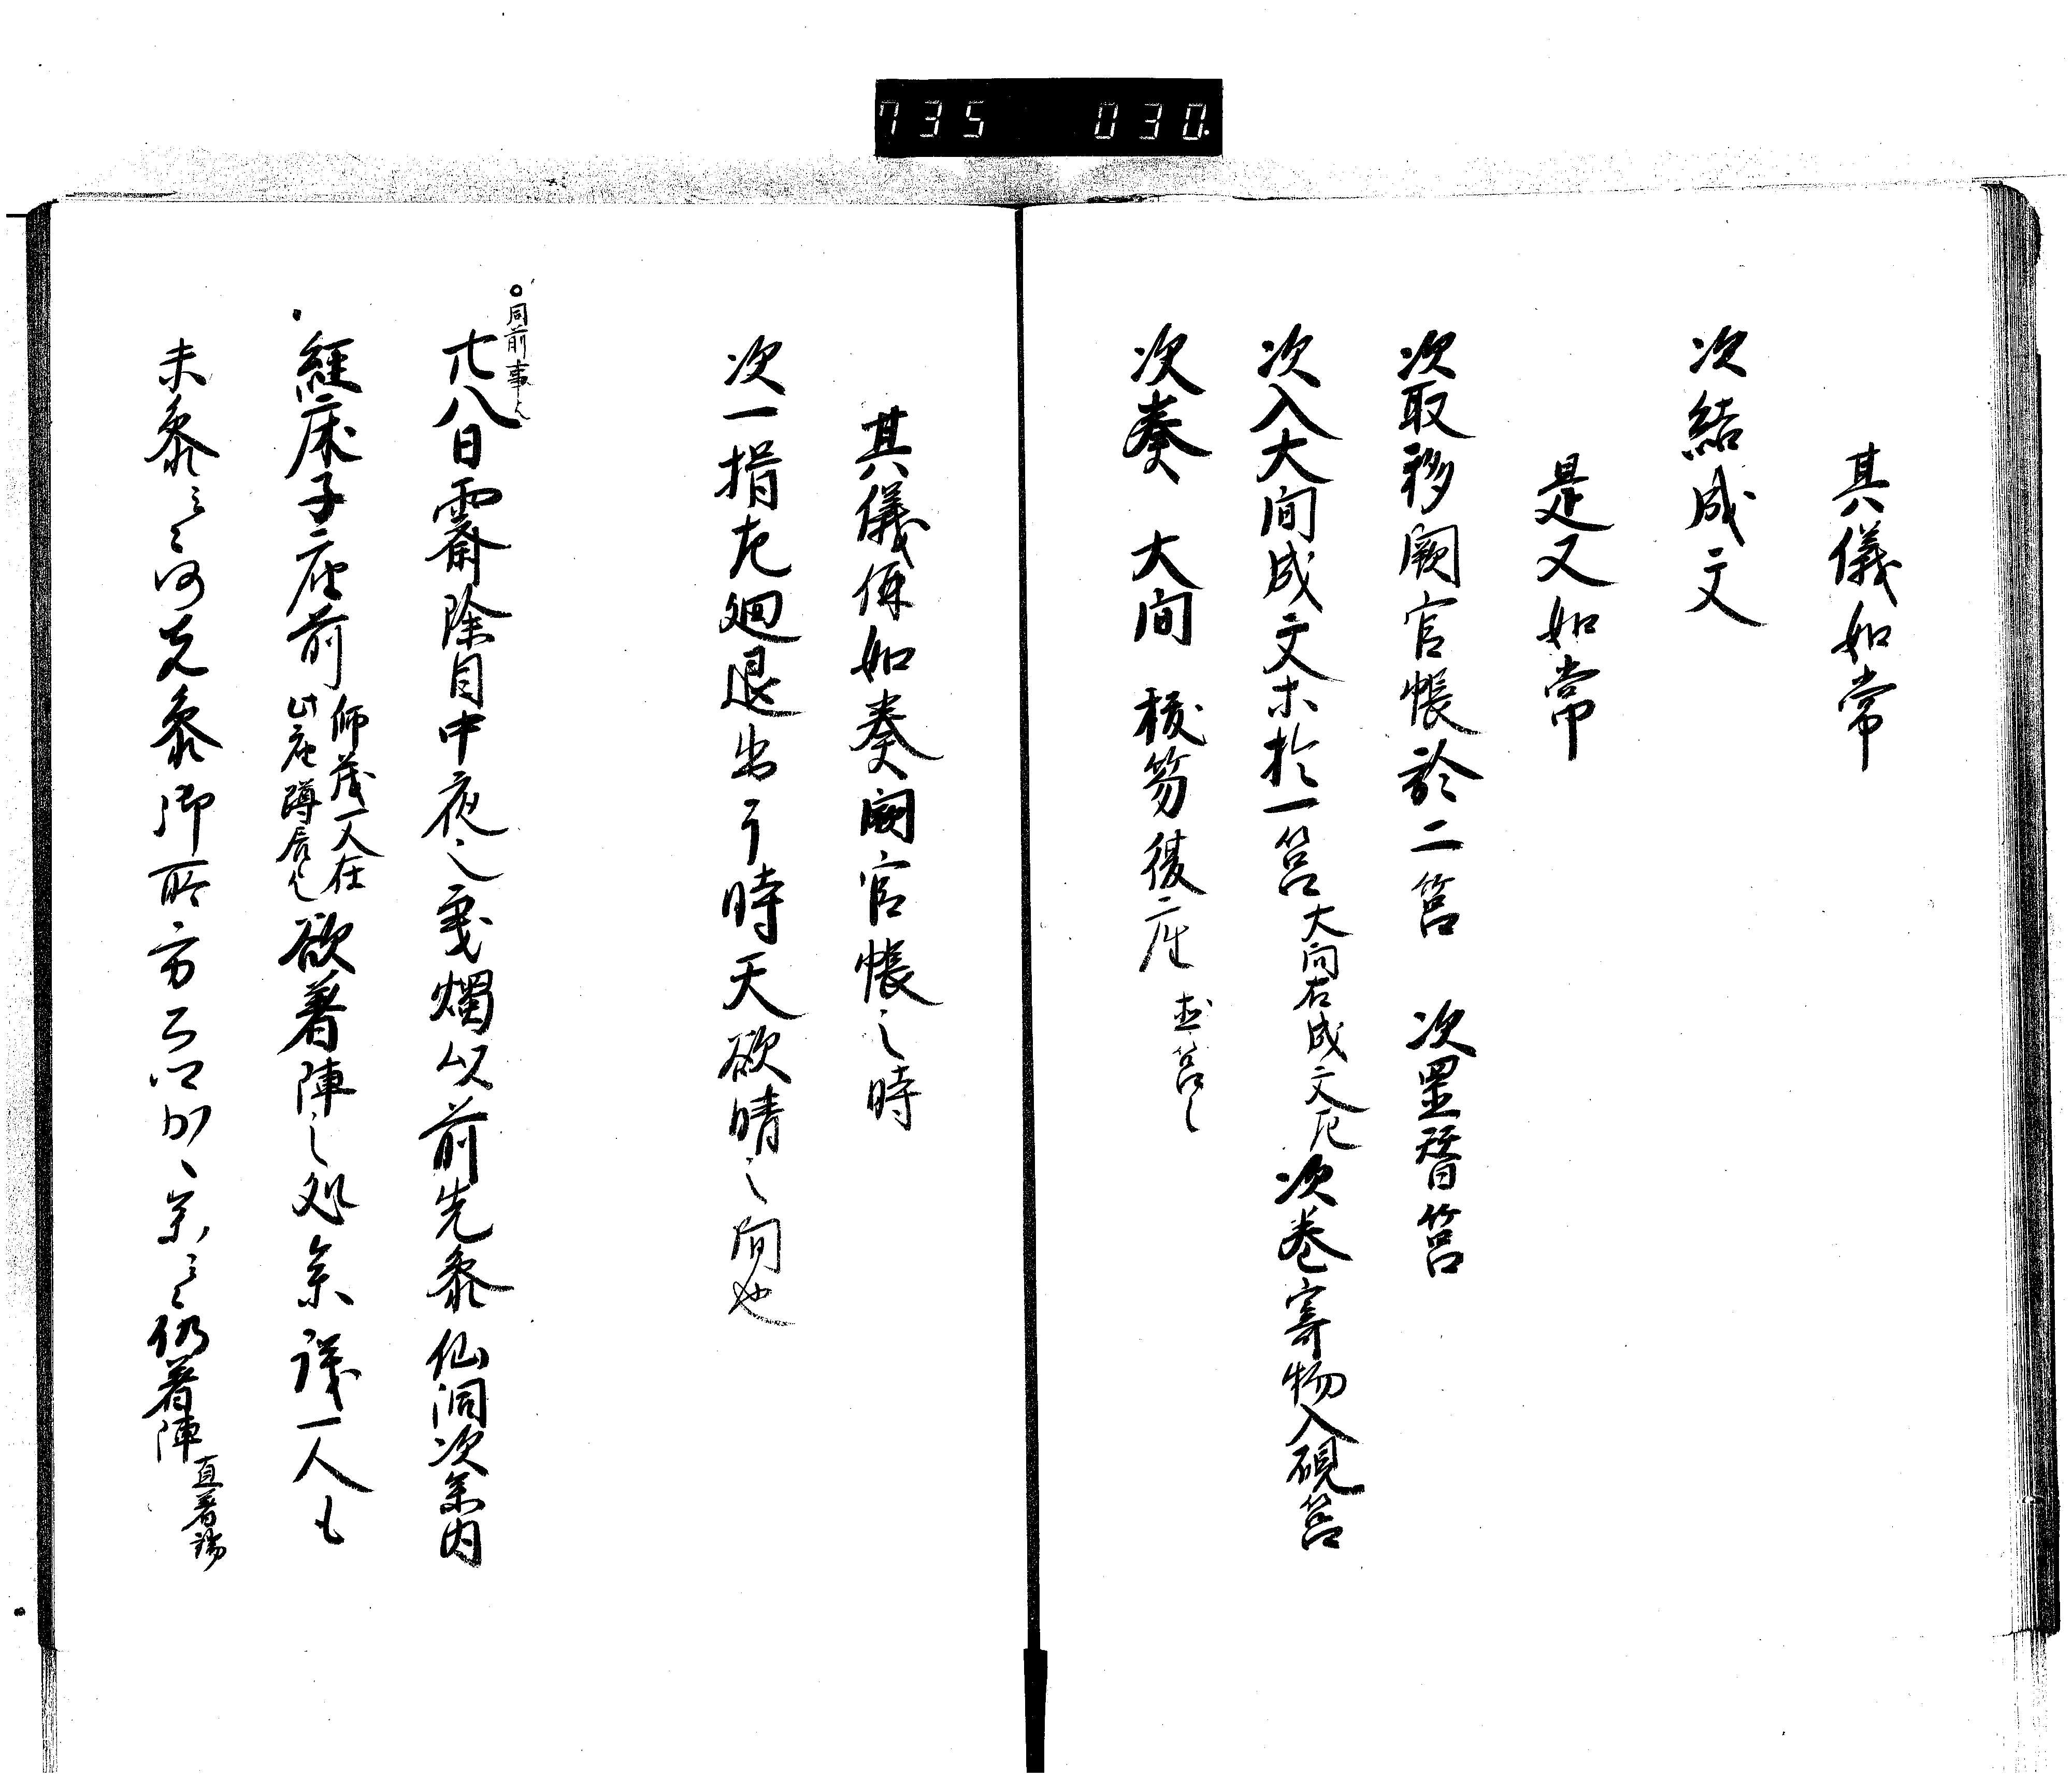 735 030
其儀如常
次結成文
是又如常
次取移闕官帳於二筥 次置硯筥
次入大間成文木於一筥 大間右成文左 次巻寄物入硯筥
次奏 大間 挍笏復座
其儀保如奏闕官帳之時
次一揖左廻退出于時天欲晴之間也
○同前事也
廿八日霽除目中夜之裁燭以前先參仙洞次參内
經床子座前 師茂一人在此座蹲居也 欲著陣之処參議一人も
未參云々 仍先參御所方 參云々仍著陣 直著端